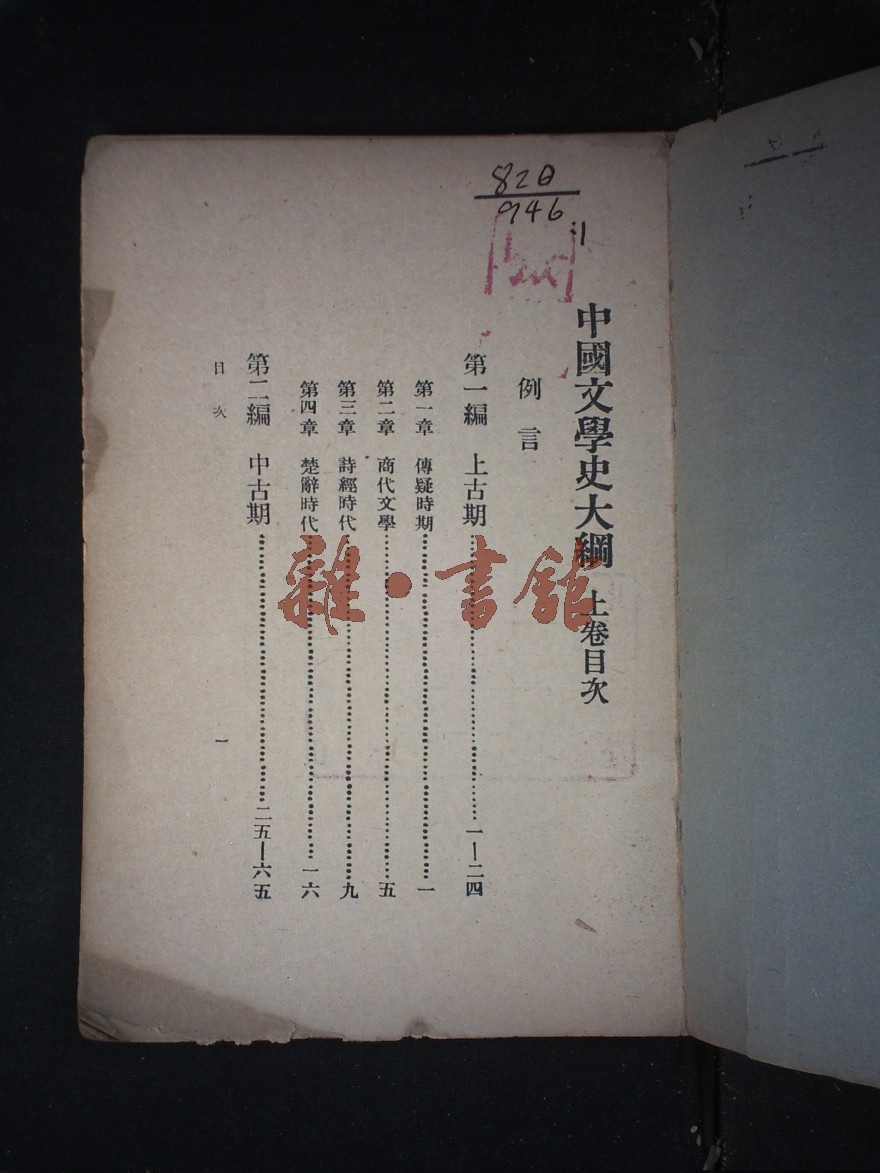 820
946
:1
中國文學史大綱 上卷目次
例言
第一編 上古期……一—二四
第一章 傳疑時期……一
第二章 商代文學……五
第三章 詩經時代……九
第四章 楚辭時代……一六
第二編 中古期……二五—六五
目次 一
雜·書館